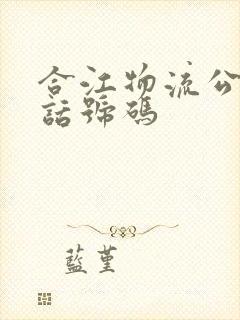 合江物流公
話號碼
藍堇